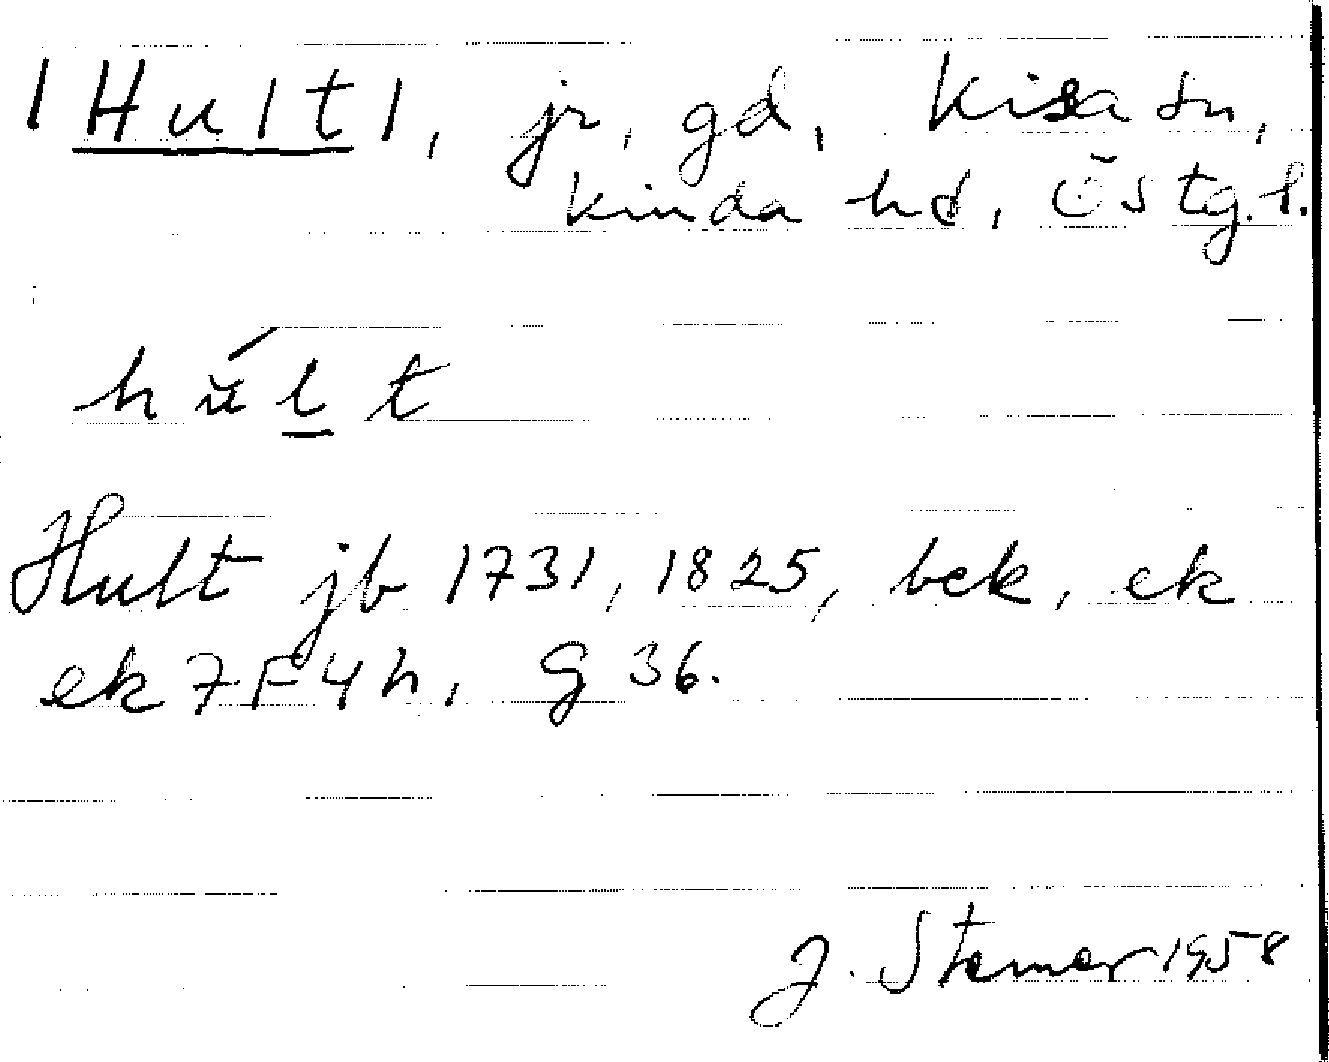 |Hult|, jr, gd, Kisa sn,
Kinda hd, Östg.l.
hu̍lt
Hult jb 1731, 1825, bek, ek
ek 7F4h, G 36.
J. Stemer 1958